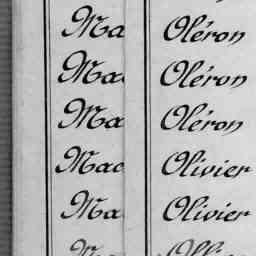 Ma Oléron
Mac Oléron
Ma Oléron
Mac Olivier
Ma Olivier